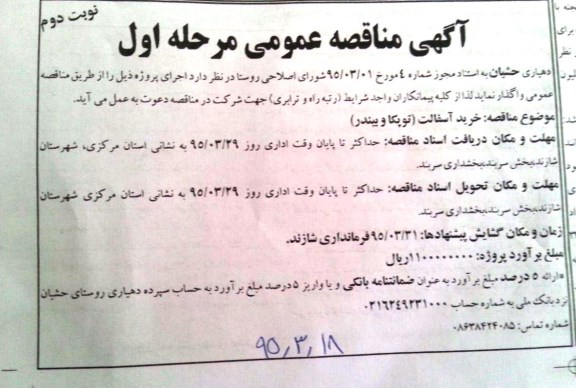 نوبت دوم
آگهی مناقصه عمومی مرحله اول
دهیاری حشیان به استناد مجوز شماره ۴ مورخ ۹۵/۰۳/۰۱ شورای اصلاحی روستا در نظر دارد اجرای پروژه ذیل را از طریق مناقصه
عمومی واگذار نماید لذا از کلیه پیمانکاران واجد شرایط (رتبه راه و ترابری) جهت شرکت در مناقصه دعوت به عمل می آید.
موضوع مناقصه: خرید آسفالت (توپکا و بیندر)
مهلت و مکان دریافت اسناد مناقصه: حداکثر تا پایان وقت اداری روز ۹۵/۰۳/۲۹ به نشانی استان مرکزی، شهرستان
شازند،بخش سربند،بخشداری سربند.
مهلت و مکان تحویل اسناد مناقصه: حداکثر تا پایان وقت اداری روز ۹۵/۰۳/۲۹ به نشانی استان مرکزی شهرستان
شازند،بخش سربند،بخشداری سربند.
زمان و مکان گشایش پیشنهادها: ۹۵/۰۳/۳۱ فرمانداری شازند.
مبلغ برآورد پروژه: ۱۱۰۰۰۰۰۰۰۰ریال
*ارائه ۵ درصد مبلغ برآورد به عنوان ضمانتنامه بانکی و یا واریز ۵درصد مبلغ برآورد به حساب سپرده دهیاری روستای حشیان
نزد بانک ملی به شماره حساب ۰۳۱۶۲۴۹۲۳۱۰۰۰
شماره تماس: ۰۸۶۳۸۴۲۴۰۸۵
۹۵٫۳٫۱۸